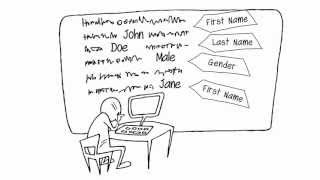 First Name
John
Last Name
Doe
Male
Gender
First Name
Jane